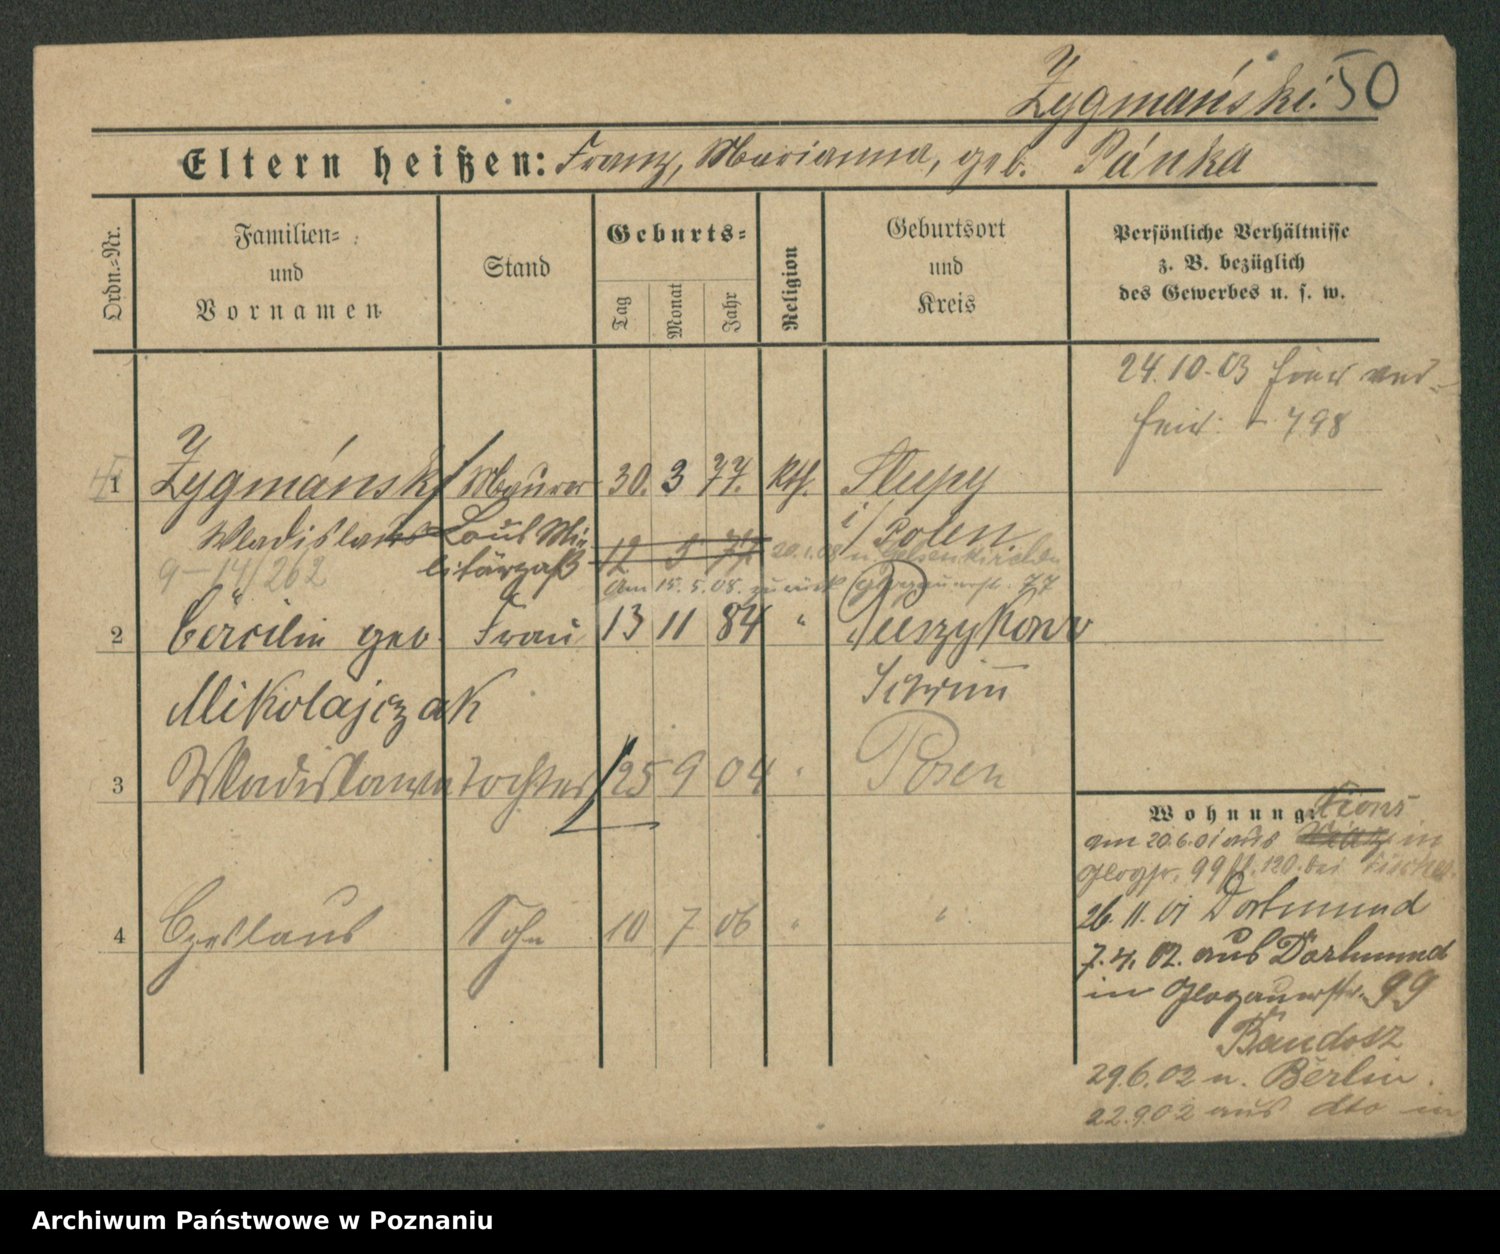 Zygmański. 50
Eltern heißen: Franz, Marianna, geb. Pánka
Ordn.-Nr.
Familien-
und
Vornamen
Stand
Geburts-
Tag
Monat
Jahr
Religion
Geburtsort
und
Kreis
Persönliche Verhältnisse
z. B. bezüglich
des Gewerbes u. s. w.
24.10.03 hier ver-
heir. 798
1 Zygmánski Maurer 30. 3 77. Kth. Slupy
Wladislaus Laut Mi- i/Polen
litärpaß 12 5 77 20.1.08 n. Gelsenkirchen
9-14/262 am 15.5.08. zurück Glogauerstr. 77
2 Cäcilie geb. Frau 13 11 84 " Pueszykowo
Mikolajczak Schrimm
3 Wladislawa Tochter 25 9 04 " Posen
4 Czeslaus Sohn 10 7 06 " "
Wohnung: Xions
am 20.6.01 aus in
Glogstr. 99 II. 120. bei
26.11.01 Dortmund
7.4.02. aus Dortmund
in Glogauerstr. 99
Bandosz
29.6.02 n. Berlin.
22.9.02 aus dto in
Archiwum Państwowe w Poznaniu